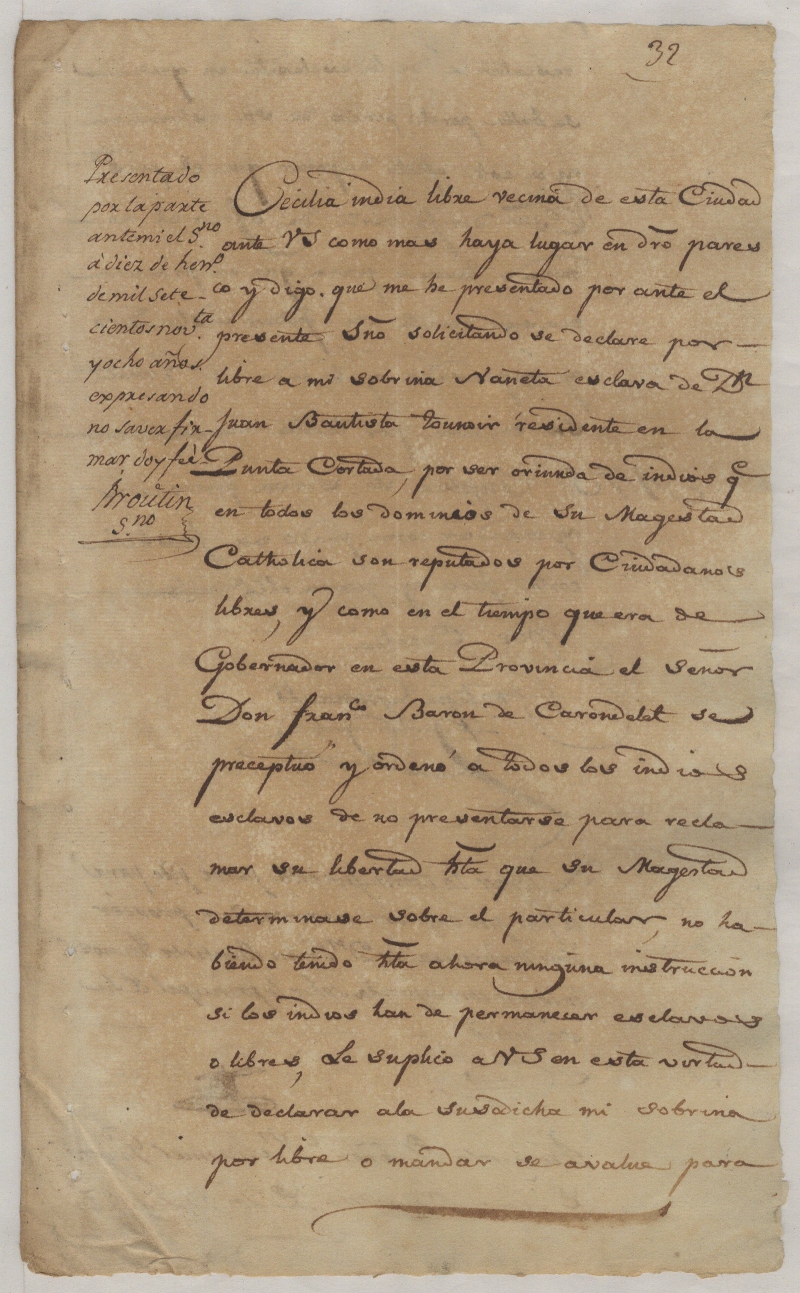 32
Presentado
por la parte
ante mi el S.no
à diez de hen.o
de mil sete-
cientos nov.ta
y ocho años.
expresando
no saver fir-
mar doy feè
Broutin
S.no
Cecilia india libre vecina de esta Ciudad
ante VS como mas haya lugar en dro pares
co y digo. que me he presentado por ante el
presente Sno solicitando se declare por
libre a mi sobrina Naneta esclava de Dn
Juan Bautista Tounoir residente en la
Punta Cortada, por ser oriunda de indios q.e
en todos los dominios de Su Magestad
Catholica son reputados por Ciudadanos
libres, y como en el tiempo que era de
Gobernador en esta Provincia el señor
Don Fran.co Baron de Carondelet se
preceptuó y ordenó a todos los indios
esclavos de no presentarse para recla-
mar su libertad hta que su Magestad
determinase sobre el particular, no ha-
biendo tenido hta ahora ninguna instruccion
si los indios han de permanecer esclavos
o libres, Le suplico a VS en esta virtud
de declarar ala susodicha mi sobrina
por libre o mandar se avalue para